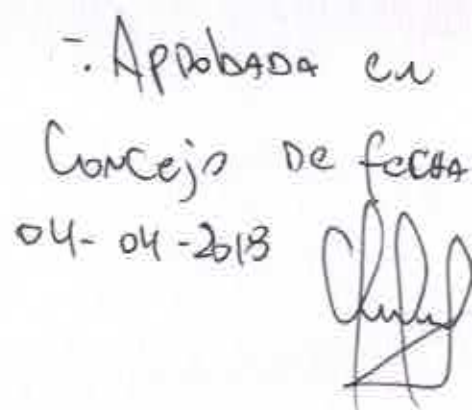 -. APROBADA en
Concejo De fecha
04-04-2018